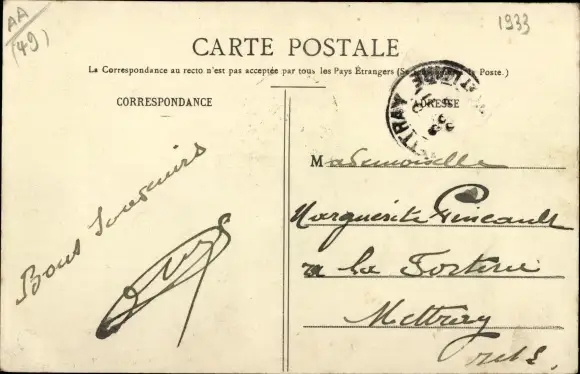 AA
(49)
1933
CARTE POSTALE
La Correspondance au recto n'est pas acceptée par tous les Pays Étrangers (Se à la Poste.)
CORRESPONDANCE
ADRESSE
METTRAY
Bons Souvenirs
Mademoiselle
Marguerite Pineault
à la
Mettray